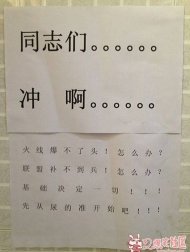 同志们。。。。。。
冲 啊。。。。。。
火线爆不了头！怎么办？
联盟补不到兵！怎么办？
基础决定一切！！！
先从尿的准开始吧！！！